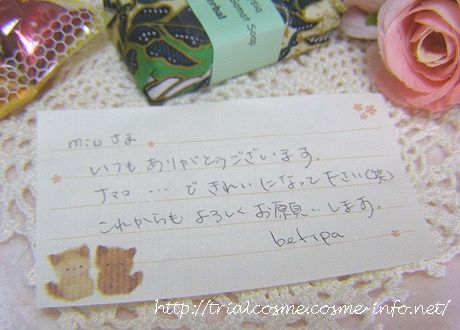 Herbal
Soap
miuさま
いつもありがとうございます。
ナマコ…できれいになって下さい(笑)
これからもよろしくお願いします。
betipa
http://trialcosme.cosme-info.net/